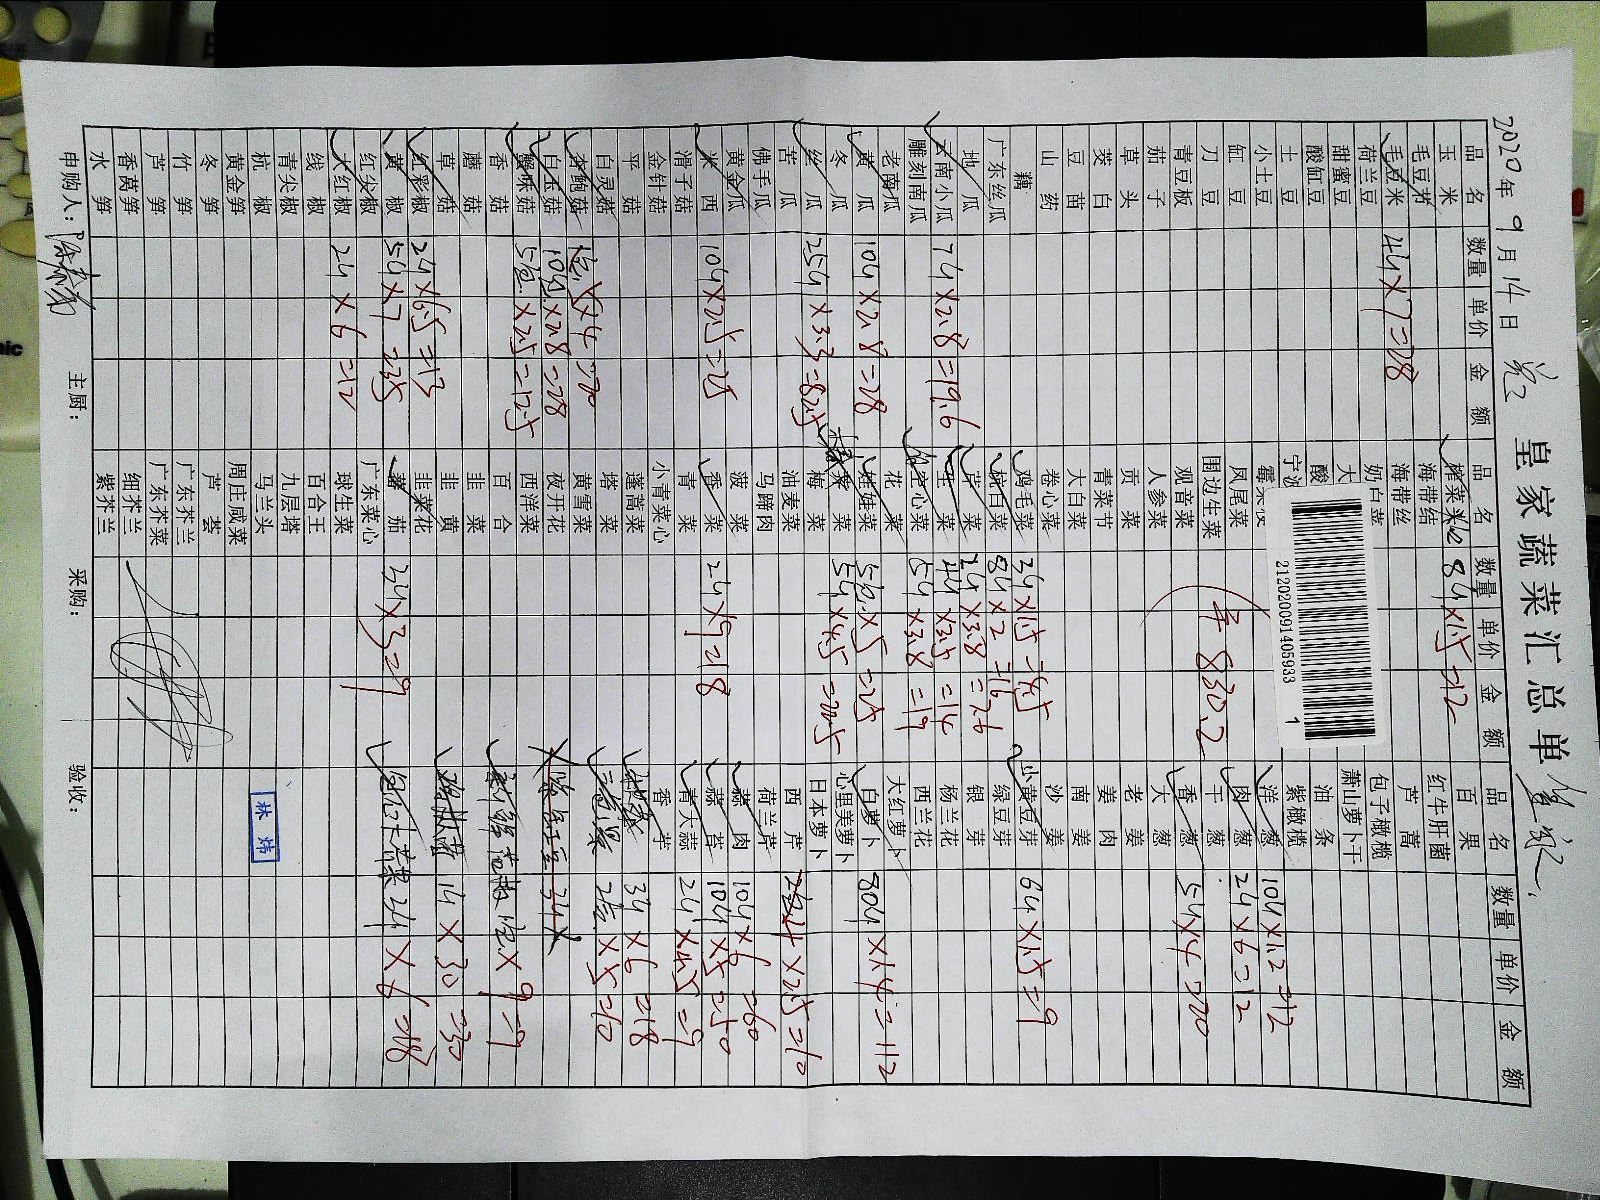 皇家蔬菜汇总单
2020年9月14日
212020091405933 1
￥830.2
品名 数量 单价 金额 品名 数量 单价 金额 品名 数量 单价 金额
玉米
毛豆节
毛豆米 4斤×7=28
荷兰豆
甜蜜豆
酸缸豆
土豆
小土豆
缸豆
刀豆
青豆板
茄子
草头
茭白
豆苗
山药
藕
广东丝瓜
地瓜
云南小瓜 7斤×2.8=19.6
雕刻南瓜
老南瓜
黄瓜 10斤×2.8=28
冬瓜
丝瓜 25斤×3.3=82.5
苦瓜
佛手瓜
黄金瓜
米西 10斤×2.5=25
滑子菇
金针菇
平菇
白灵菇
杏鲍菇
白玉菇 10包×2.8=28
蟹味菇 5包×2.5=12.5
香菇
蘑菇
草菇
红彩椒 2斤×6.5=13
黄椒 5斤×7=35
红尖椒
大红椒 2斤×6=12
线椒
青尖椒
杭椒
黄金笋
冬笋
竹笋
芦笋
香莴笋
水笋
榨菜头 8斤×1.5=12
海带结
海带丝
奶白菜
大
酸
宁波
凤尾菜
围边生菜
观音菜
人参菜
贡菜
青菜节
大白菜
卷心菜
鸡毛菜 3斤×1.5=4.5
杭白菜 8斤×2=16
芹菜 2斤×3.8=7.6
生菜 4斤×3.5=14
空心菜 5斤×3.8=19
花菜
娃娃菜 5包×5=25
紫菜 5斤×4.5=22.5
梅菜
油麦菜
马蹄肉
菠菜
香菜 2斤×9=18
青菜
小青菜心
蓬蒿菜
塔菜
黄雪菜
夜开花
西洋菜
百合
韭菜
韭黄
韭菜花
蕃茄 3斤×3=9
广东菜心
球生菜
百合王
九层塔
马兰头
周庄咸菜
芦荟
广东芥兰
广东芥菜
细芥兰
紫芥兰
百果
红牛肝菌
芦蒿
包子橄榄
萧山萝卜干
油条
紫橄榄
洋葱 10斤×1.2=12
肉葱 2斤×6=12
干葱
香葱 5斤×4=20
大葱
老姜
姜肉
南姜
沙姜
小黄豆芽 6斤×1.5=9
绿豆芽
银芽
杨兰花
西兰花
大红萝卜
白萝卜 80斤×1.4=112
心里美萝卜
日本萝卜
西芹 4斤×2.5=10
荷兰芹
蒜肉 10斤×6=60
蒜苔 10斤×5=50
青大蒜 2斤×4.5=9
香芋
3斤×6=18
2×5=10
3斤×
1包×9=9
1斤×30=30
3斤×6=18
申购人： 主厨： 采购： 验收：
林炜